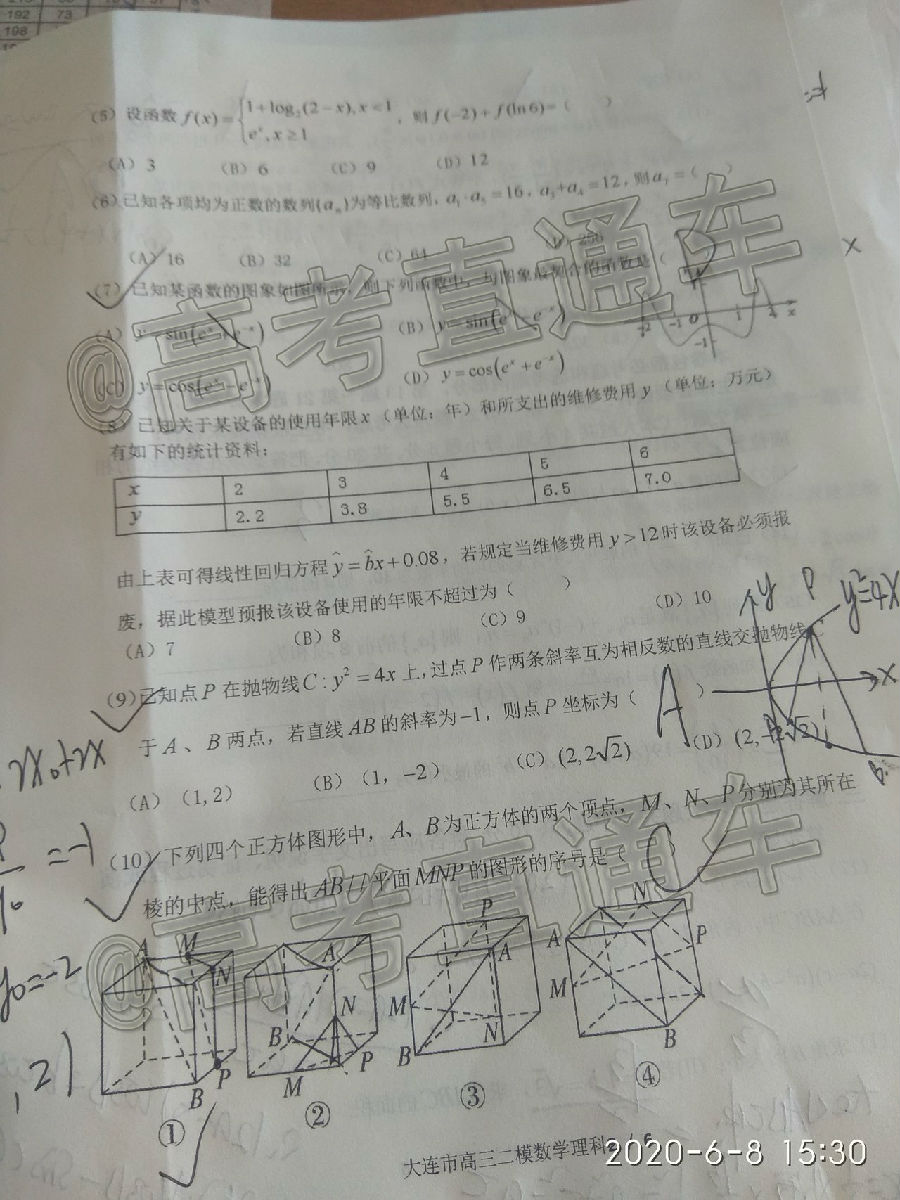 192 73
198
(5) 设函数 f(x)={1+log₂(2-x),x<1
eˣ,x≥1 , 则 f(-2)+f(ln6)=( )
(A) 3 (B) 6 (C) 9 (D) 12
(6) 已知各项均为正数的数列{aₙ}为等比数列, a₁·a₅=16, a₃+a₄=12, 则a₇=( )
(A) 16 (B) 32 (C) 64 (D) 256
(7) 已知某函数的图象如图所示, 则下列函数中, 与图象最契合的函数是(
(A) y=sin(eˣ+e⁻ˣ) (B) y=sin(eˣ-e⁻ˣ)
(C) y=cos(eˣ-e⁻ˣ) (D) y=cos(eˣ+e⁻ˣ)
-2 -1 o 1 2 x
-1
(8) 已知关于某设备的使用年限x (单位: 年) 和所支出的维修费用 y (单位: 万元)
有如下的统计资料:
x 2 3 4 5 6
y 2.2 3.8 5.5 6.5 7.0
由上表可得线性回归方程ŷ=b̂x+0.08, 若规定当维修费用y>12时该设备必须报
废, 据此模型预报该设备使用的年限不超过为( )
(A) 7 (B) 8 (C) 9 (D) 10
(9) 已知点P在抛物线C:y²=4x上, 过点P作两条斜率互为相反数的直线交抛物线C
于A、B两点, 若直线AB的斜率为-1, 则点P坐标为( A )
(A) (1,2) (B) (1,-2) (C) (2,2√2) (D) (2,-2√2)
y P y²=4x
x
B
=-1
y0=-2
,2)
(10) 下列四个正方体图形中, A、B为正方体的两个顶点, M、N、P分别为其所在
棱的中点, 能得出AB//平面MNP的图形的序号是( )
A M N B P
A N B M P
P A M N B
N A P M B
① ② ③ ④
大连市高三二模数学理科
2020-6-8 15:30
@高考直通车
@高考直通车